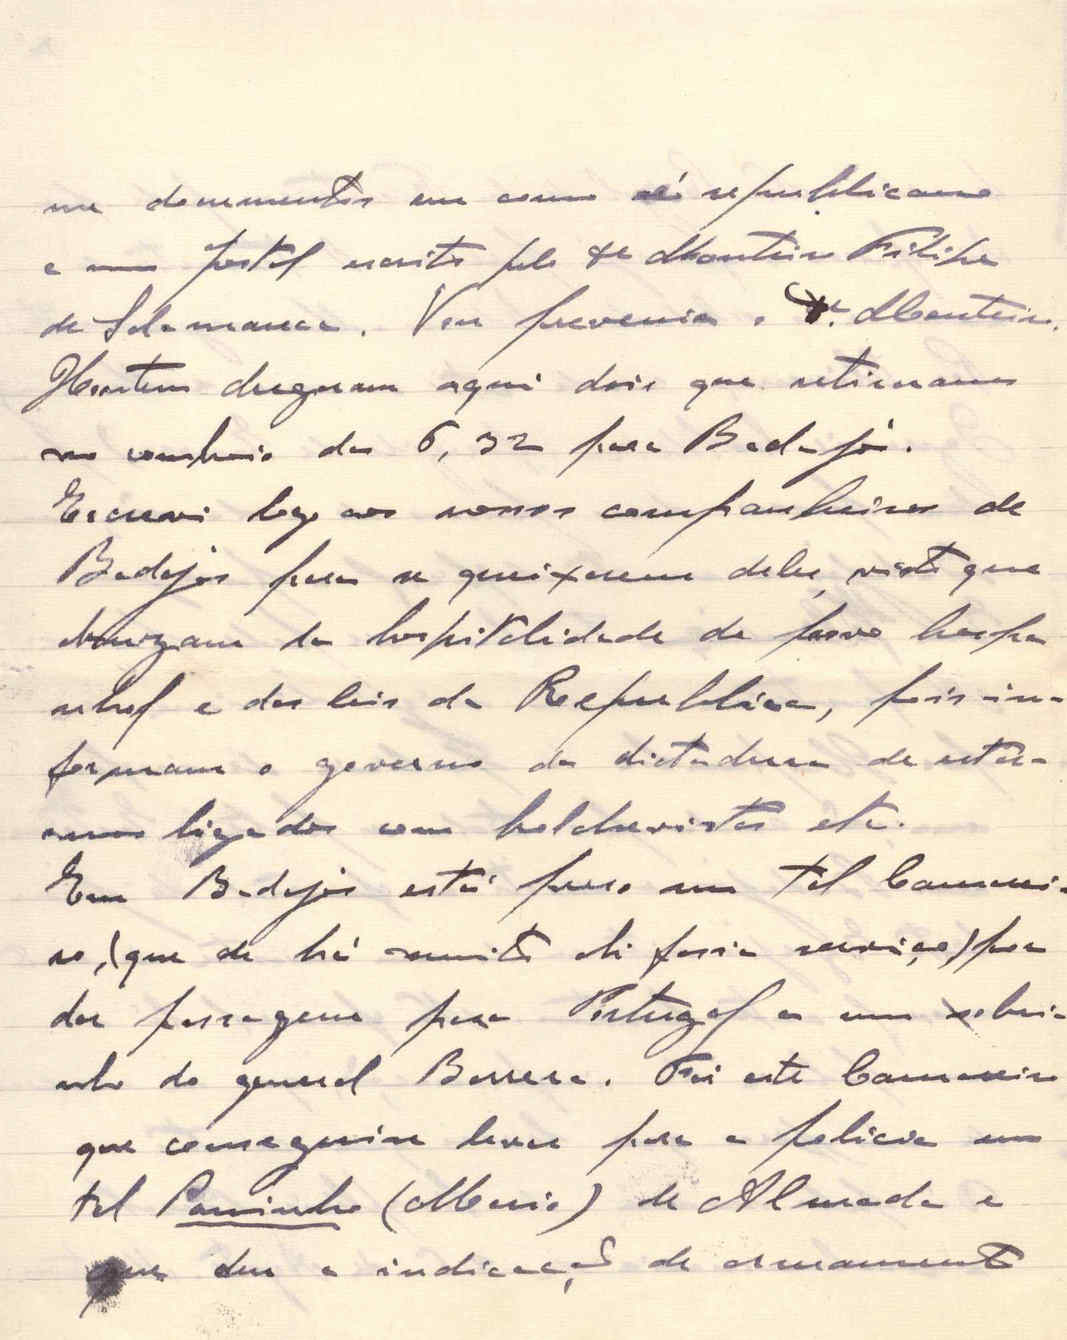 um documentos em como é republicano
e um postal escrito pelo Dr Monteiro Filipe
de Salamanca. Vou prevenir o Dr. Monteiro.
Hontem chegaram aqui dois que retiraram
no comboio das 6,32 para Badajós.
Escrevi logo aos nossos companheiros de
Badajós para se queixarem deles, visto que
abuzam da hospitalidade do povo hespa
nhol e das leis da Republica, pois in-
formam o governo da dictadura de estar-
mos ligados com bolchevistas etc.
Em Badajós está preso um tal Carrei-
ro, (que de há muito ali fasia serviço) por
dar passagem para Portugal a um sobri-
nho do general Barrera. Foi este
que conseguiu levar para a policia um
tal Paninho (Mario) de Almada e
que deu a indicação de armamento